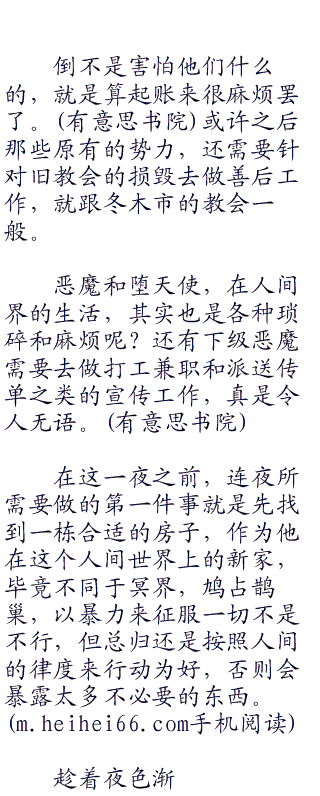 倒不是害怕他们什么
的，就是算起账来很麻烦罢
了。(有意思书院)或许之后
那些原有的势力，还需要针
对旧教会的损毁去做善后工
作，就跟冬木市的教会一
般。
恶魔和堕天使，在人间
界的生活，其实也是各种琐
碎和麻烦呢？还有下级恶魔
需要去做打工兼职和派送传
单之类的宣传工作，真是令
人无语。(有意思书院)
在这一夜之前，连夜所
需要做的第一件事就是先找
到一栋合适的房子，作为他
在这个人间世界上的新家，
毕竟不同于冥界，鸠占鹊
巢，以暴力来征服一切不是
不行，但总归还是按照人间
的律度来行动为好，否则会
暴露太多不必要的东西。
(m.heihei66.com手机阅读)
趁着夜色渐